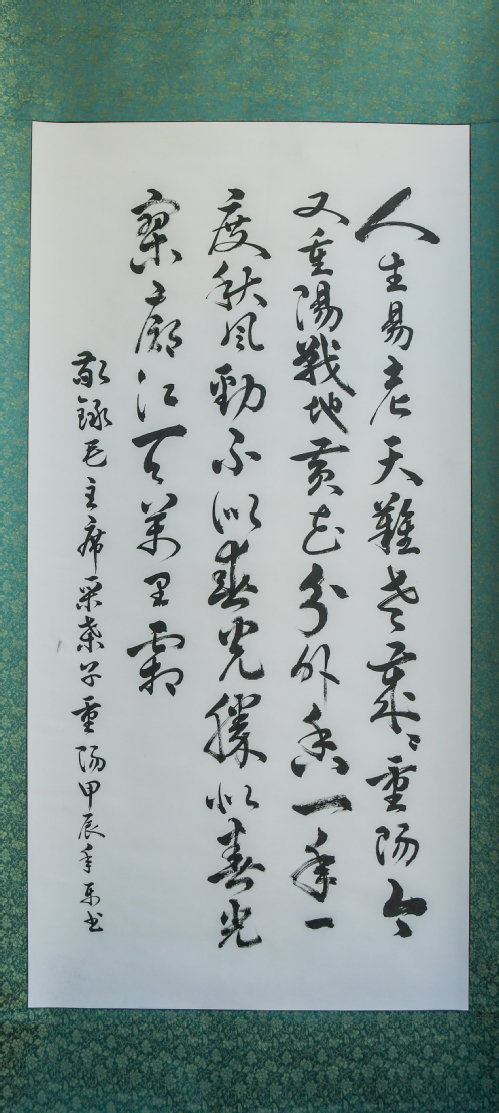 人生易老天難老歲〻重陽今
又重陽戰地黃花分外香一年一
度秋風勁不似春光勝似春光
寥廓江天萬里霜
敬錄毛主席采桑子重陽甲辰年书